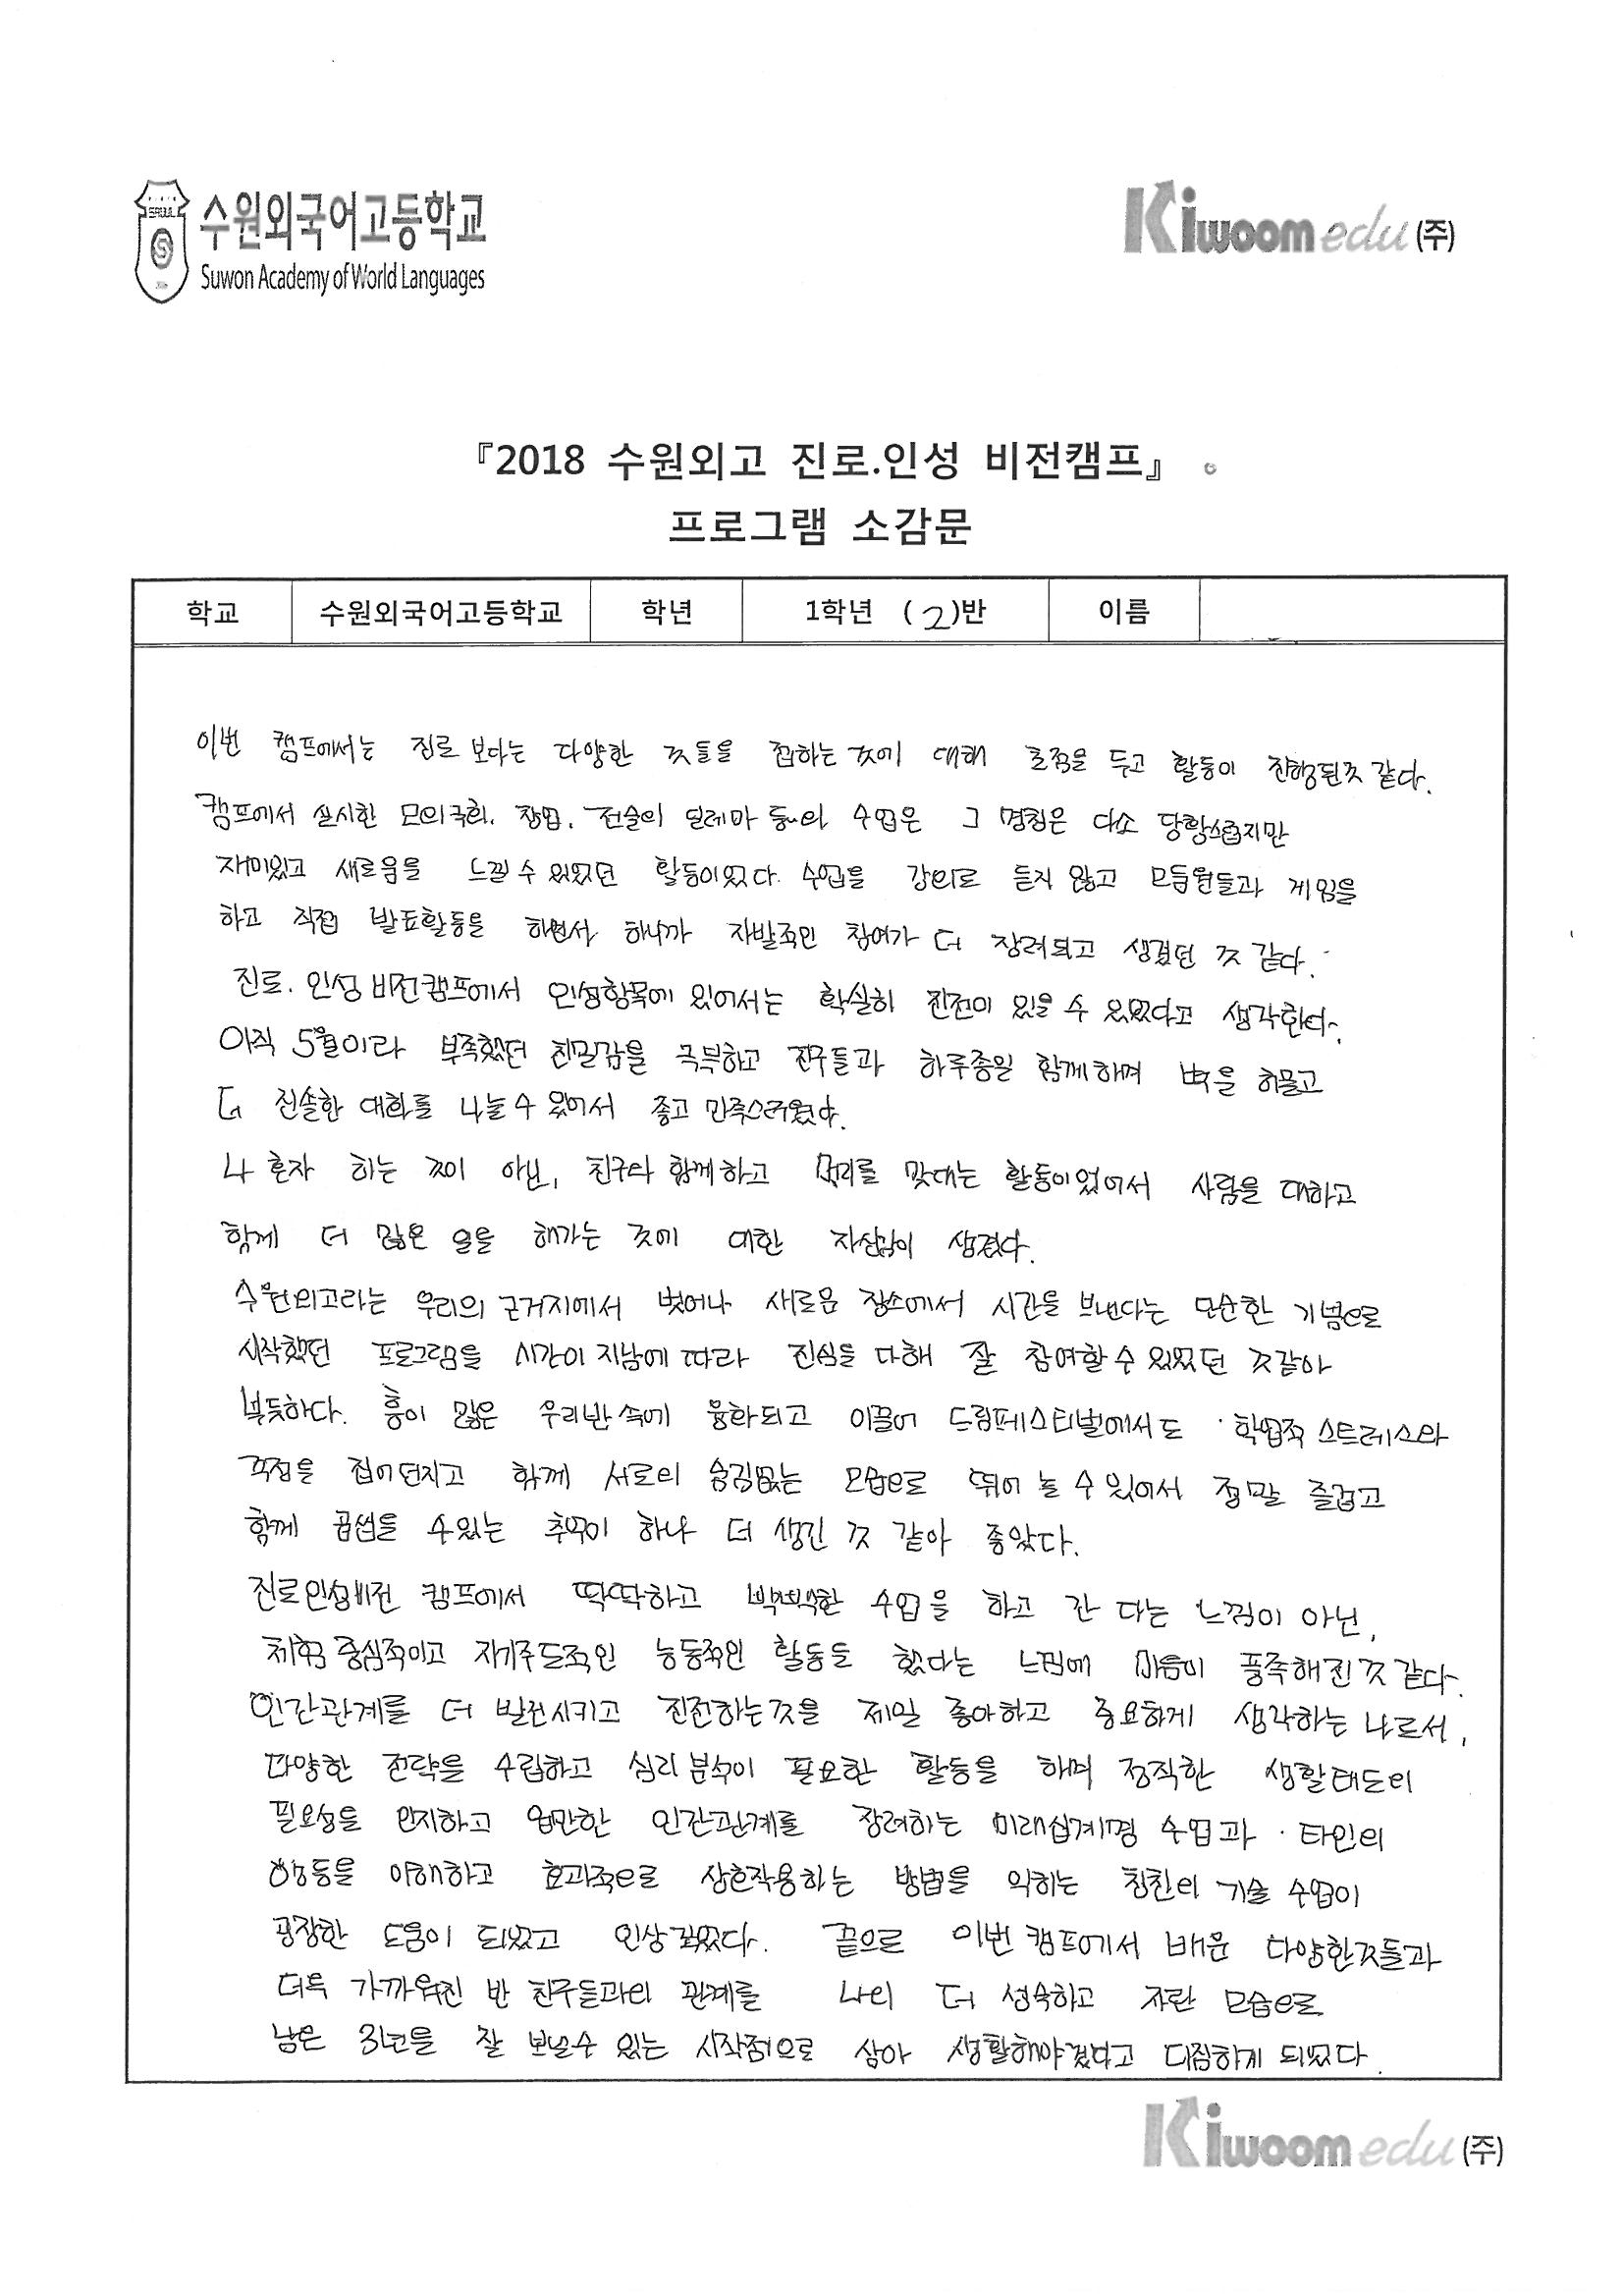 수원외국어고등학교
Suwon Academy of World Languages
Kiwoom edu (주)
『2018 수원외고 진로.인성 비전캠프』
프로그램 소감문
학교 수원외국어고등학교 학년 1학년 (2)반 이름
이번 캠프에서는 진로 보다는 다양한 것들을 접하는 것에 대해 초점을 두고 활동이 진행된것 같다.
캠프에서 실시한 모의국회, 창업, 전술의 딜레마 등의 수업은 그 명칭은 다소 당황스럽지만
재미있고 새로움을 느낄 수 있었던 활동이었다. 수업을 강의로 듣지 않고 모둠원들과 게임을
하고 직접 발표활동을 하면서 하니까 자발적인 참여가 더 장려되고 생겼던 것 같다.
진로.인성 비전캠프에서 인성항목에 있어서는 확실히 진전이 있을 수 있었다고 생각한다.
아직 5월이라 부족했던 친밀감을 극복하고 친구들과 하루종일 함께하며 벽을 허물고
더 진솔한 대화를 나눌 수 있어서 좋고 만족스러웠다.
나 혼자 하는 것이 아닌, 친구와 함께하고 머리를 맞대는 활동이었어서 사람을 대하고
함께 더 많은 일을 해가는 것에 대한 자신감이 생겼다.
수원외고라는 우리의 근거지에서 벗어나 새로운 장소에서 시간을 보낸다는 단순한 기념으로
시작했던 프로그램을 시간이 지남에 따라 진심을 다해 잘 참여할 수 있었던 것같아
뿌듯하다. 흥이 많은 우리반 속에 융화되고 이끌어 드림페스티벌에서도 학업적 스트레스와
걱정을 집어던지고 함께 서로의 숨김없는 모습으로 뛰어 놀 수 있어서 정말 즐겁고
함께 곱씹을 수있는 추억이 하나 더 생긴 것 같아 좋았다.
진로인성비전 캠프에서 딱딱하고 빡빡한 수업을 하고 간 다는 느낌이 아닌,
체험 중심적이고 자기주도적인 능동적인 활동을 했다는 느낌에 마음이 풍족해진것 같다.
인간관계를 더 발전시키고 진전하는것을 제일 좋아하고 중요하게 생각하는 나로서,
다양한 전략을 수립하고 심리 분석이 필요한 활동을 하며 정직한 생활태도의
필요성을 인지하고 원만한 인간관계를 장려하는 미래십계명 수업과 타인의
행동을 이해하고 효과적으로 상호작용하는 방법을 익히는 칭찬의 기술 수업이
굉장한 도움이 되었고 인상 깊었다. 끝으로 이번 캠프에서 배운 다양한것들과
더욱 가까워진 반 친구들과의 관계를 나의 더 성숙하고 자란 모습으로
남은 3년을 잘 보낼수 있는 시작점으로 삼아 생활해야겠다고 다짐하게 되었다.
Kiwoom edu (주)